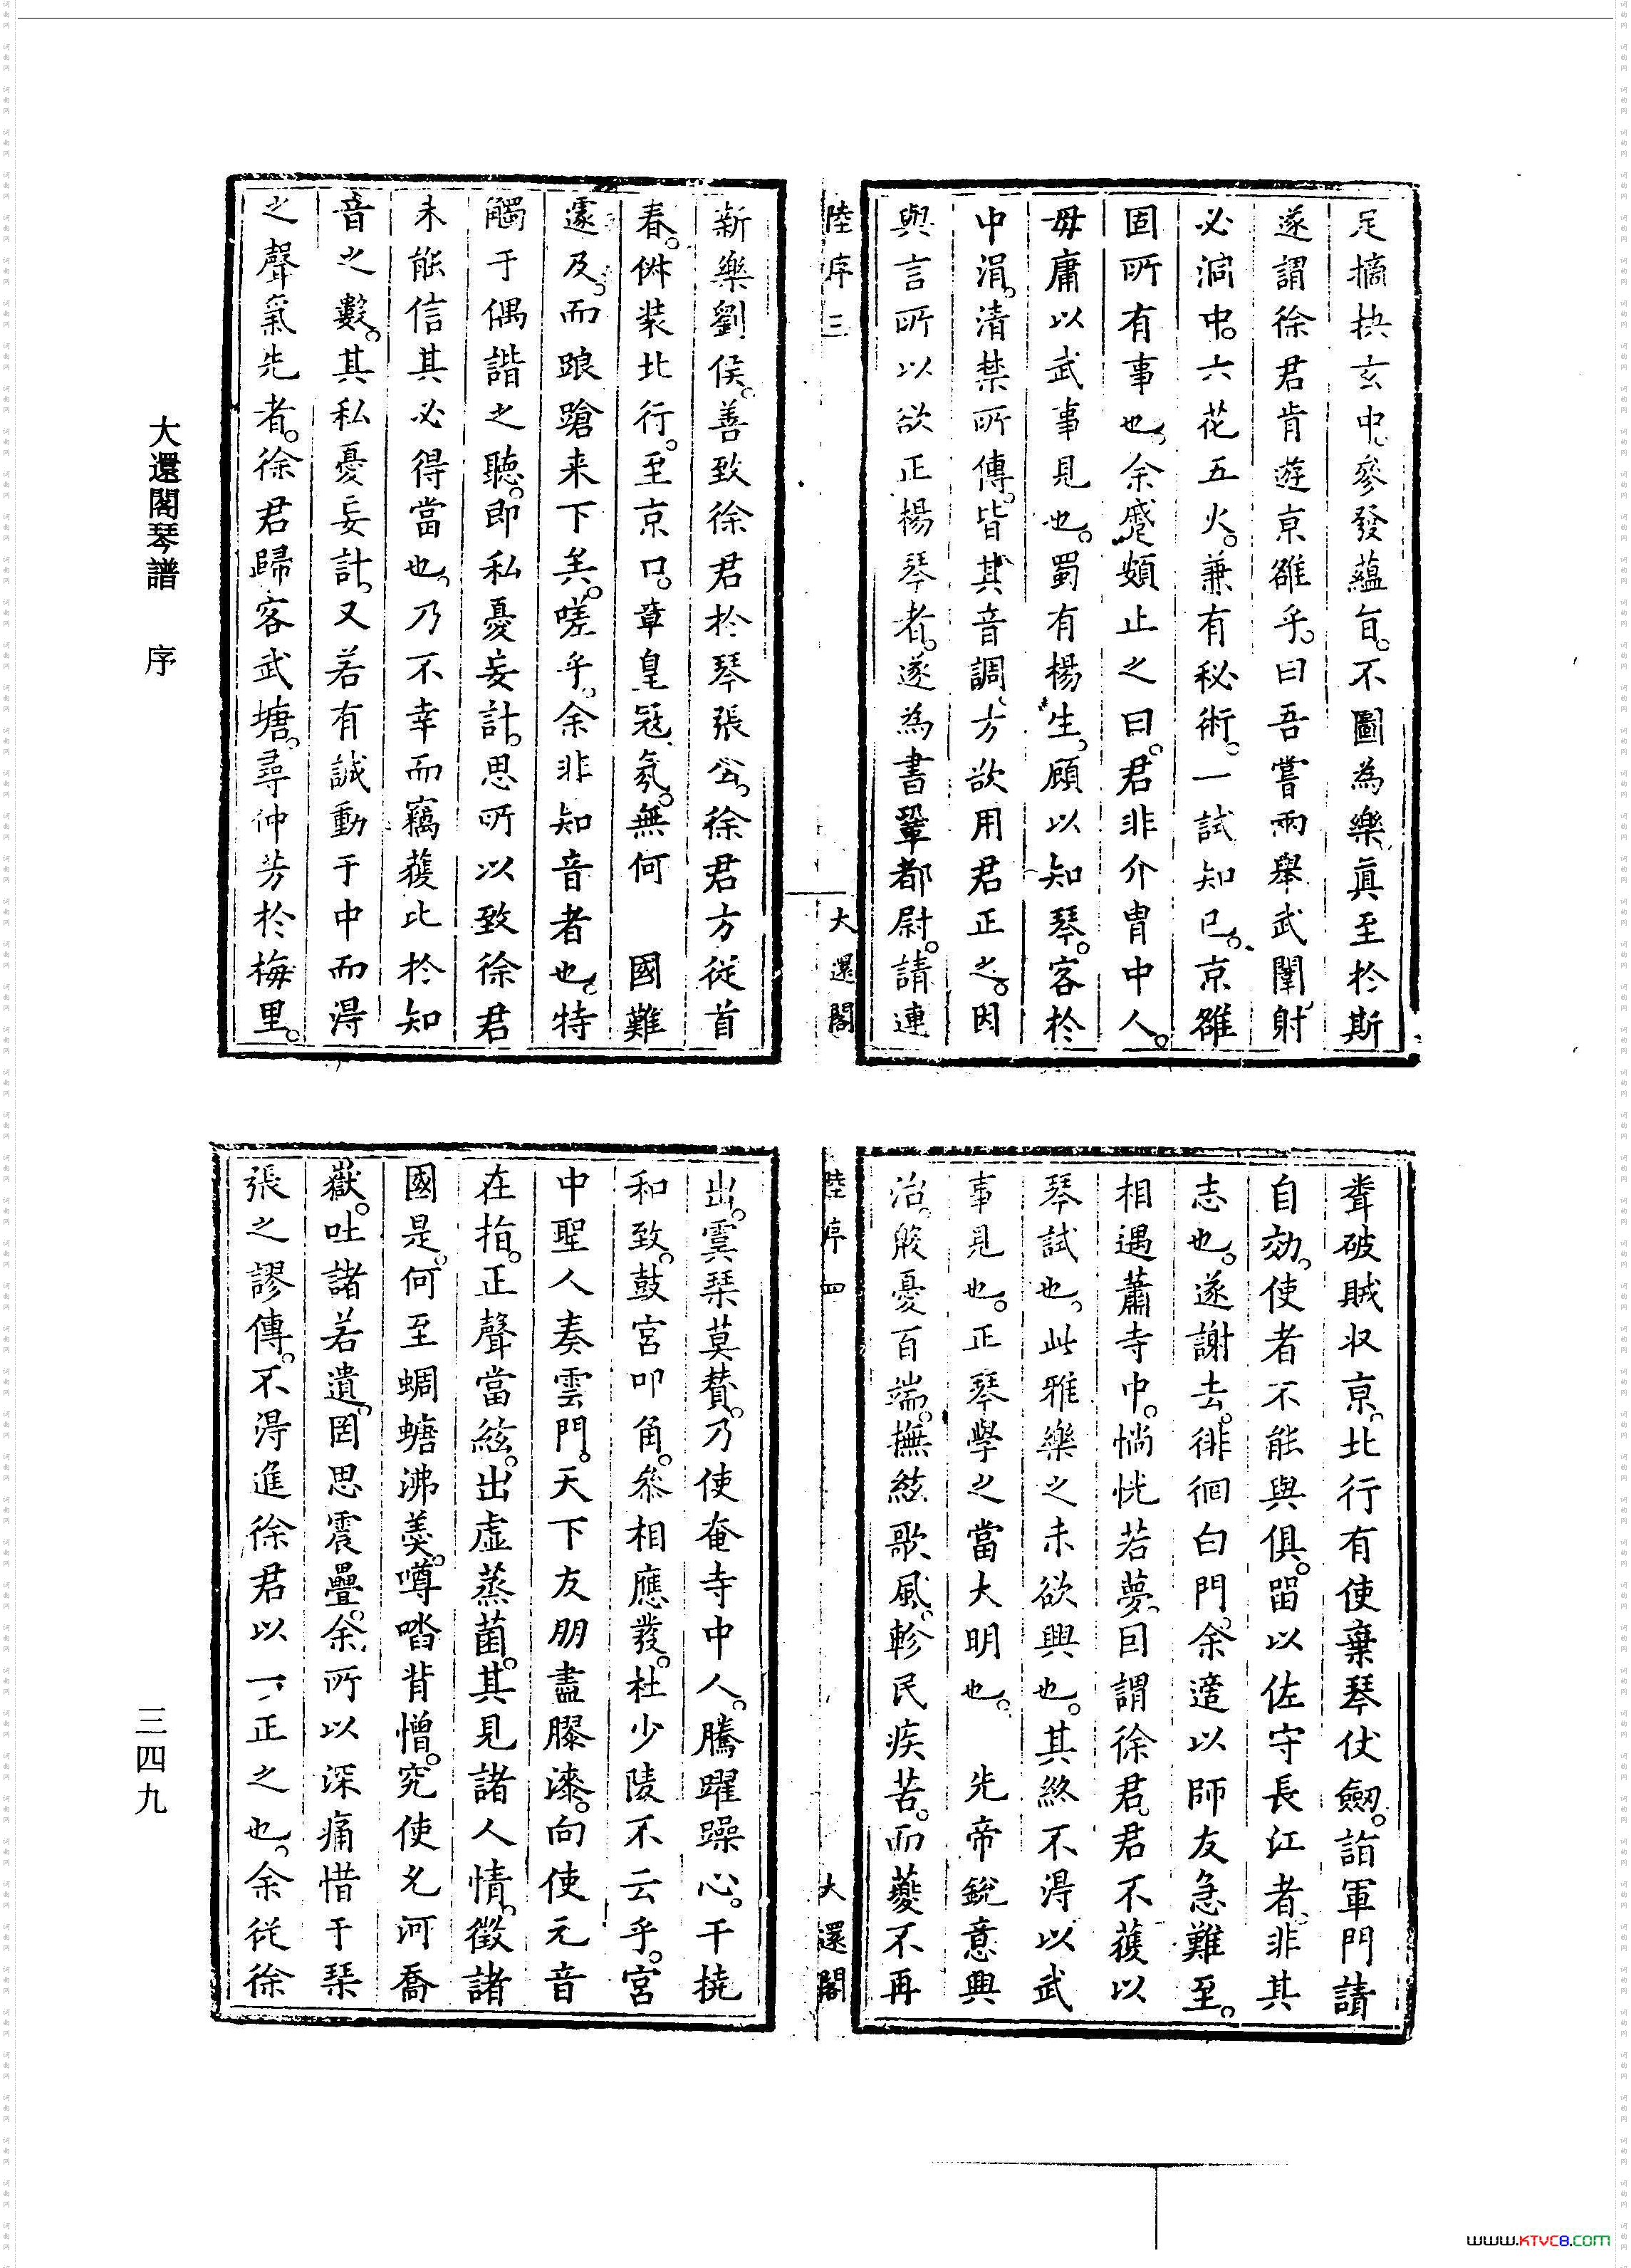 足摘抉玄中參發蘊旨不圖為樂真至於斯
遂謂徐君肯遊京雒乎曰吾嘗兩舉武闈射
必洞中六花五火兼有秘術一試知已京雒
固所有事也余蹙頞止之曰君非介胄中人
毋庸以武事見也蜀有楊生顧以知琴客於
中涓清禁所傳皆其音調方欲用君正之因
與言所以欲正楊琴者遂為書鞏都尉請連
陸序三
大還閣
新樂劉侯善致徐君於琴張公徐君方從首
春俶裝北行至京口章皇冦氛無何 國難
遽及而踉蹌来下矣嗟乎余非知音者也特
觸于偶諧之聽即私憂妄計思所以致徐君
未能信其必得當也乃不幸而竊獲比於知
音之數其私憂妄計又若有誠動于中而淂
之聲氣先者徐君歸客武塘尋仲芳於梅里
聋破賊収京北行有使棄琴仗劒詣軍門請
自効使者不能與俱畱以佐守長江者非其
志也遂謝去徘徊白門余適以師友急難至
相遇蕭寺中惝恍若夢囙謂徐君君不獲以
琴試也此雅樂之未欲興也其終不淂以武
事見也正琴學之當大明也 先帝銳意興
治殷憂百端撫絃歌風軫民疾苦而夔不再
陸序四
大還閣
出虞琹莫賛乃使奄寺中人騰躍躁心干撓
和致鼓宮叩角叅相應發杜少陵不云乎宮
中聖人奏雲門天下友朋盡膠漆向使元音
在指正聲當絃出虛蒸菌其見諸人情徵諸
國是何至蜩螗沸羹噂喈背憎究使允河喬
嶽吐諸若遺囙思震疊余所以深痛惜于琹
張之謬傳不淂進徐君以一正之也余從徐
大還閣琴譜 序
三四九
WWW.KTVC8.COM